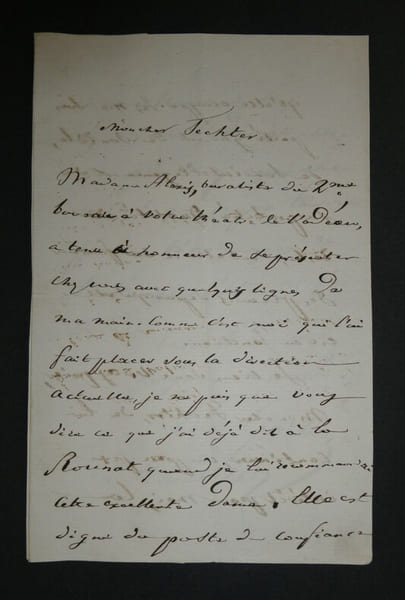 Mon cher Fechter
Madame Alexis, buraliste du 2me
bureau à votre théatre de l'odéon,
a tenu à honneur de se présenter
chez vous avec quelques lignes de
ma main. Comme c'est moi qui l'ai
fait placer sous la direction
actuelle, je ne puis que vous
dire ce que j'ai déjà dit à la
Rounat quand je lui recommandai
cette excellente dame. Elle est
digne du poste de confiance